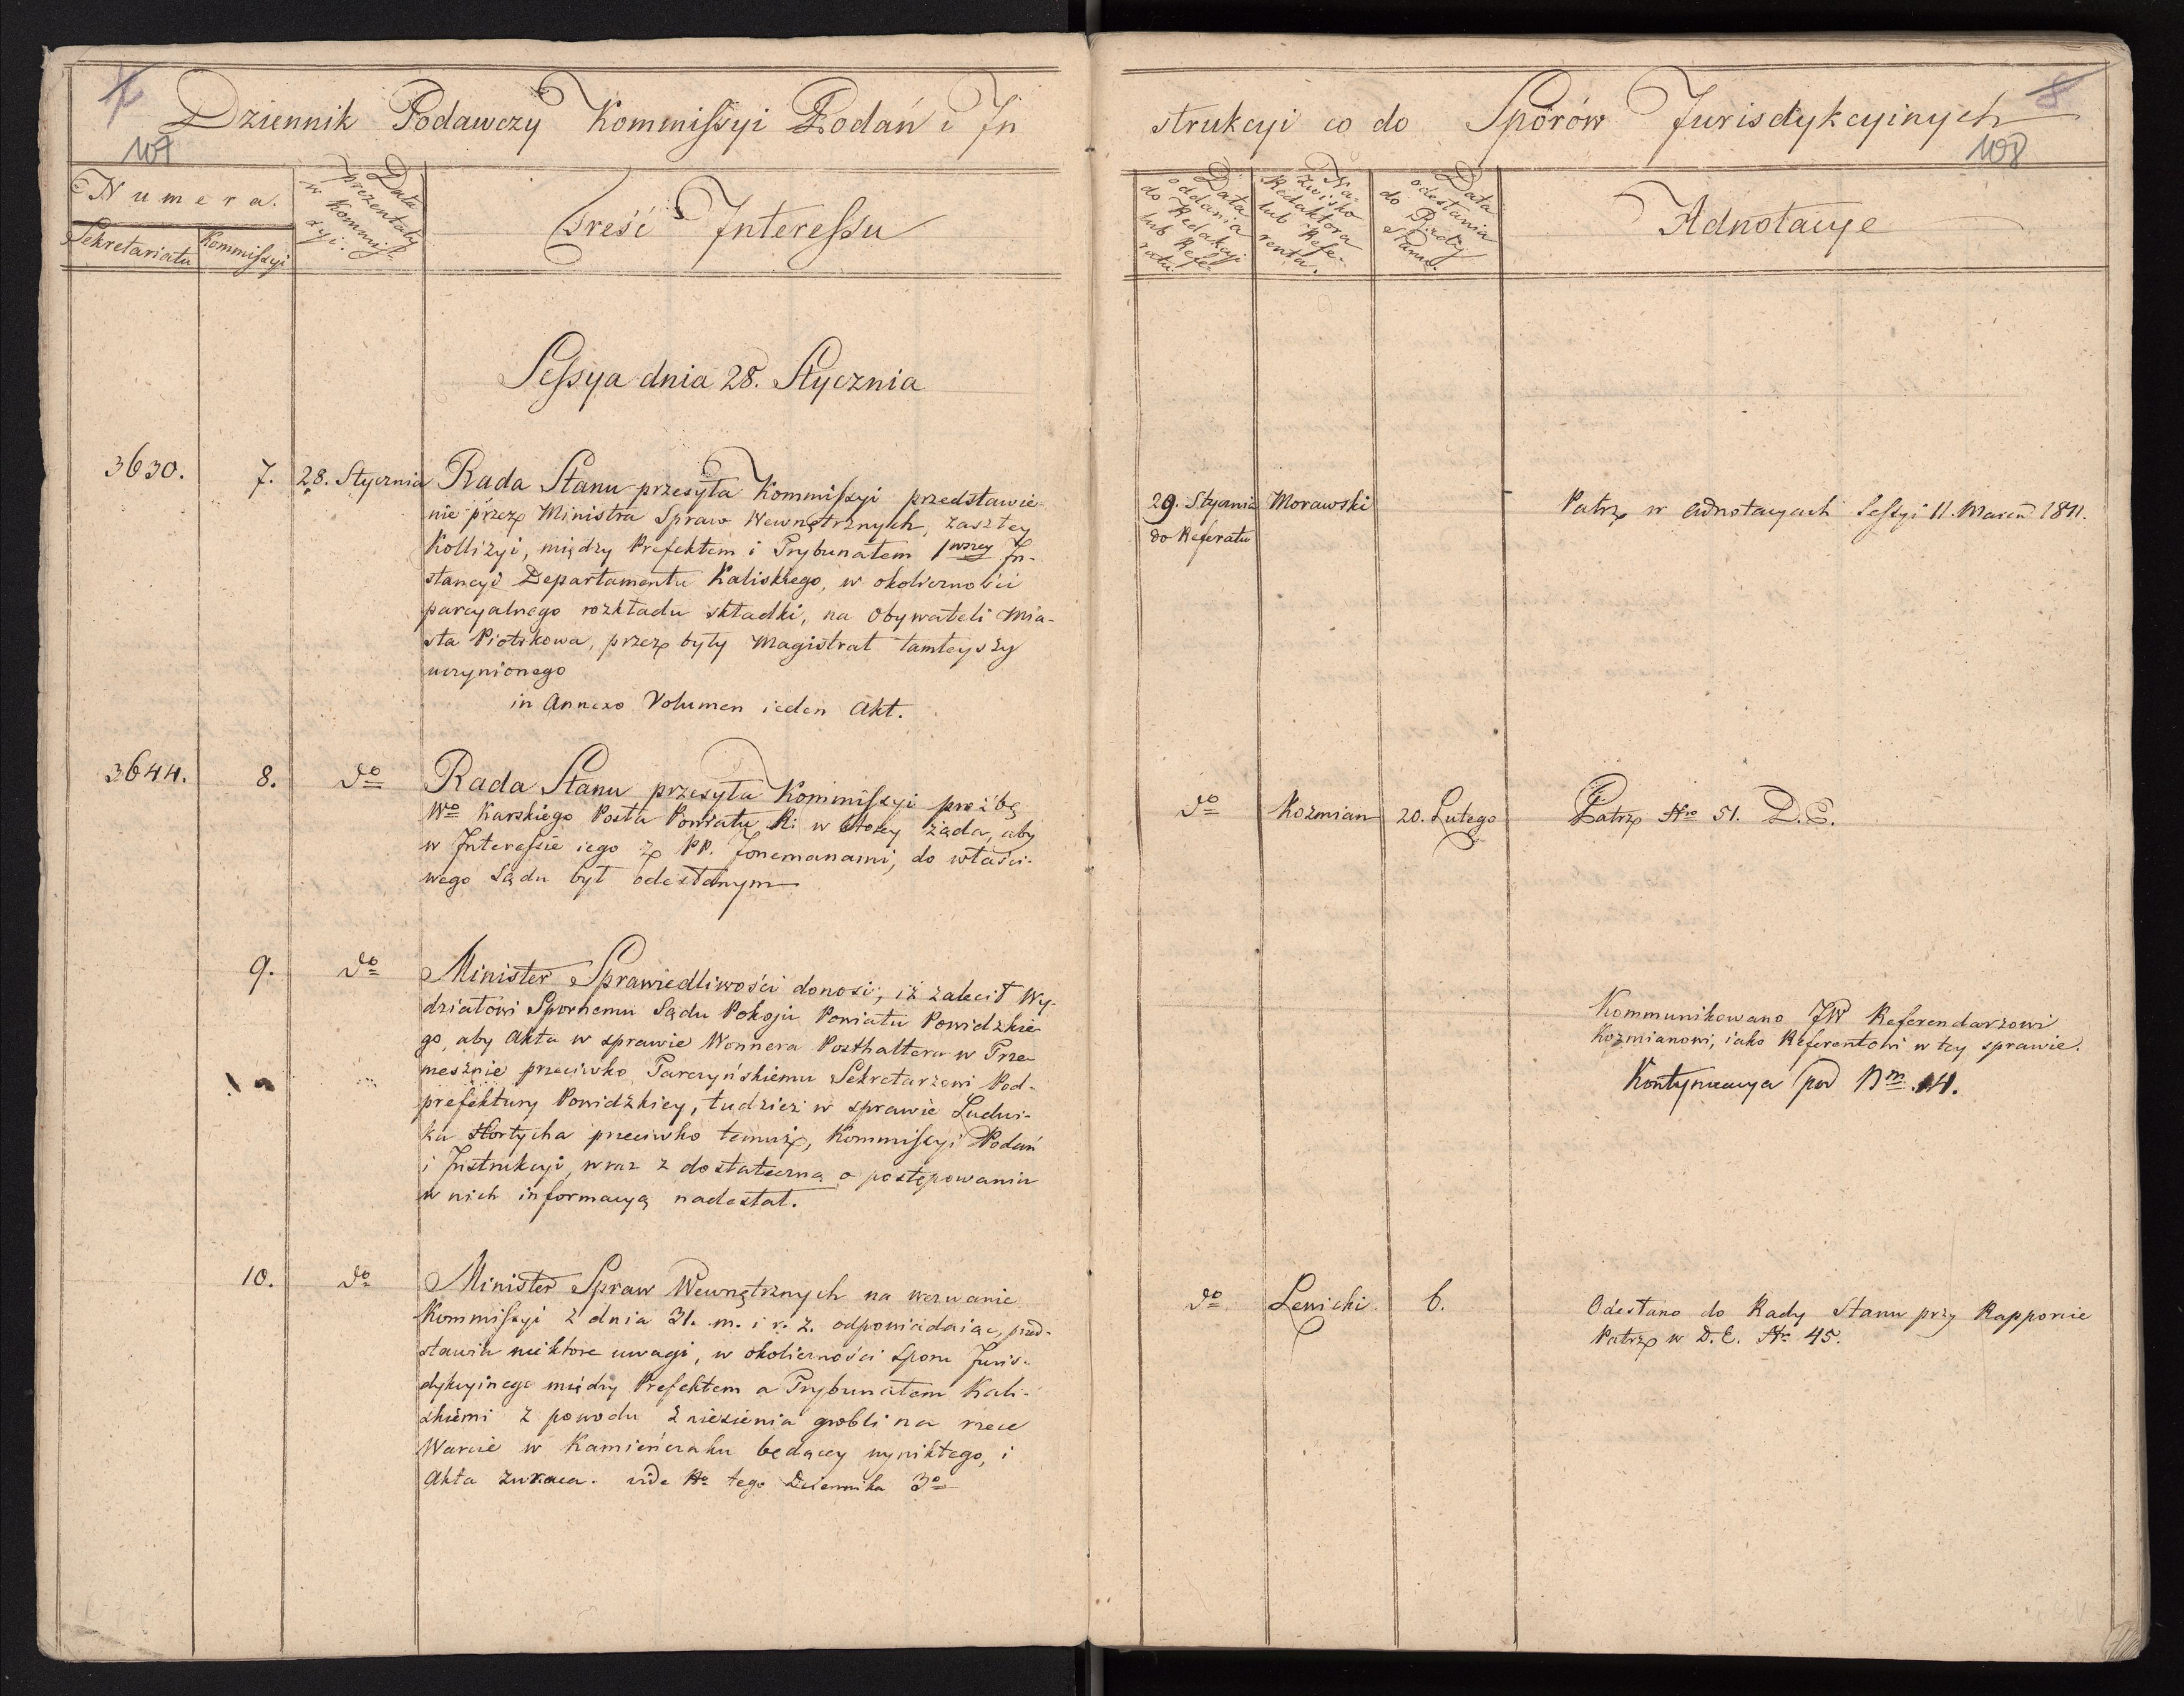 Dziennik Podawczy Kommissyi Podań i In
107
Numera.
Sekretariatu
Kommissyi
Data prezentaty w Kommissyi.
Treść Interessu
Sessya dnia 28. Stycznia
3630.
7.
28. Stycznia
Rada Stanu przesyła Kommissyi przedstawie-
nie przez Ministra Spraw Wewnętrznych, zaszłey
Kollizyi, między Prefektem i Trybunałem 1wszey In-
stancyi Departamentu Kaliskiego, w okoliczności
parcyalnego rozkładu składki, na Obywateli Mia-
sta Piotrkowa, przez były Magistrat tamteyszy
uczynionego
in Annexo Volumen ieden Akt.
3644.
8.
do
Rada Stanu przesyła Kommissyi proźbę
Wo Karskiego Posła Powiatu w którey żąda, aby
w Interessie iego z PP. Jonemanami, do właści-
wego Sądu był odesłanym
9.
do
Minister Sprawiedliwości donosi, iż zalecił Wy-
działowi Spornemu Sądu Pokoju Powiatu Powidzkie-
go, aby Akta w sprawie Wonnera Posthaltera w Trze-
mesznie przeciwko Parczyńskiemu Sekretarzowi Pod-
prefektury Powidzkiey, tudzież w sprawie Ludwi-
ka Hortycha przeciwko temuż, Kommissyi Podań
i Instrukcyi, wraz z dostateczną o postępowaniu
w nich informacyą nadesłał.
10.
do
Minister Spraw Wewnętrznych na wezwanie
Kommissyi z dnia 31. m. i r. z. odpowiadaiąc, przed-
stawia niektóre uwagi, w okoliczności sporu Juris-
dykcyinego między Prefektem a Trybunałem Kali-
skiemi z powodu zniesienia grobli na rzece
Warcie w Kamieńczaku będącey wynikłego, i
Akta zwraca. vide No tego Dziennika 3o
strukcyi co do Sporów Jurisdykcyinych
8
108
Data oddania do Redakcyi lub Referatu
Nazwisko Redaktora lub Referenta.
Data odesłania do Rady Stanu.
Adnotacye
29. Stycznia
do Referatu
Morawski
Patrz w adnotacyach Sessyi 11. Marca 1811.
do
Kozmian
20. Lutego
Patrz Nro 51. D.E.
Kommunikowano JW Referendarzowi
Kozmianowi, iako Referentowi w tey sprawie.
Kontynuacya pod Nm 14.
do
Lewicki
6.
Odesłano do Rady Stanu przy Rapporcie
Patrz w D.E. Nr 45.